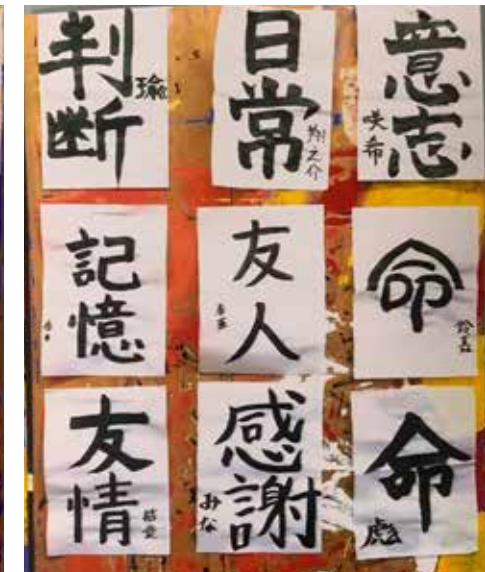 判断
瑜
日常
翔之介
意志
咲希
記憶
友人
命
友情
感謝
みな
命
彪